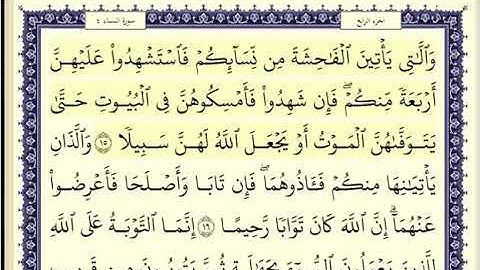 الجزء الرابع سورة النساء ٤
وَٱلَّٰتِي يَأۡتِينَ ٱلۡفَٰحِشَةَ مِن نِّسَآئِكُمۡ فَٱسۡتَشۡهِدُواْ عَلَيۡهِنَّ
أَرۡبَعَةٗ مِّنكُمۡۖ فَإِن شَهِدُواْ فَأَمۡسِكُوهُنَّ فِي ٱلۡبُيُوتِ حَتَّىٰ
يَتَوَفَّىٰهُنَّ ٱلۡمَوۡتُ أَوۡ يَجۡعَلَ ٱللَّهُ لَهُنَّ سَبِيلٗا ١٥ وَٱلَّذَانِ
يَأۡتِيَٰنِهَا مِنكُمۡ فَـَٔاذُوهُمَاۖ فَإِن تَابَا وَأَصۡلَحَا فَأَعۡرِضُواْ
عَنۡهُمَآۗ إِنَّ ٱللَّهَ كَانَ تَوَّابٗا رَّحِيمًا ١٦ إِنَّمَا ٱلتَّوۡبَةُ عَلَى ٱللَّهِ